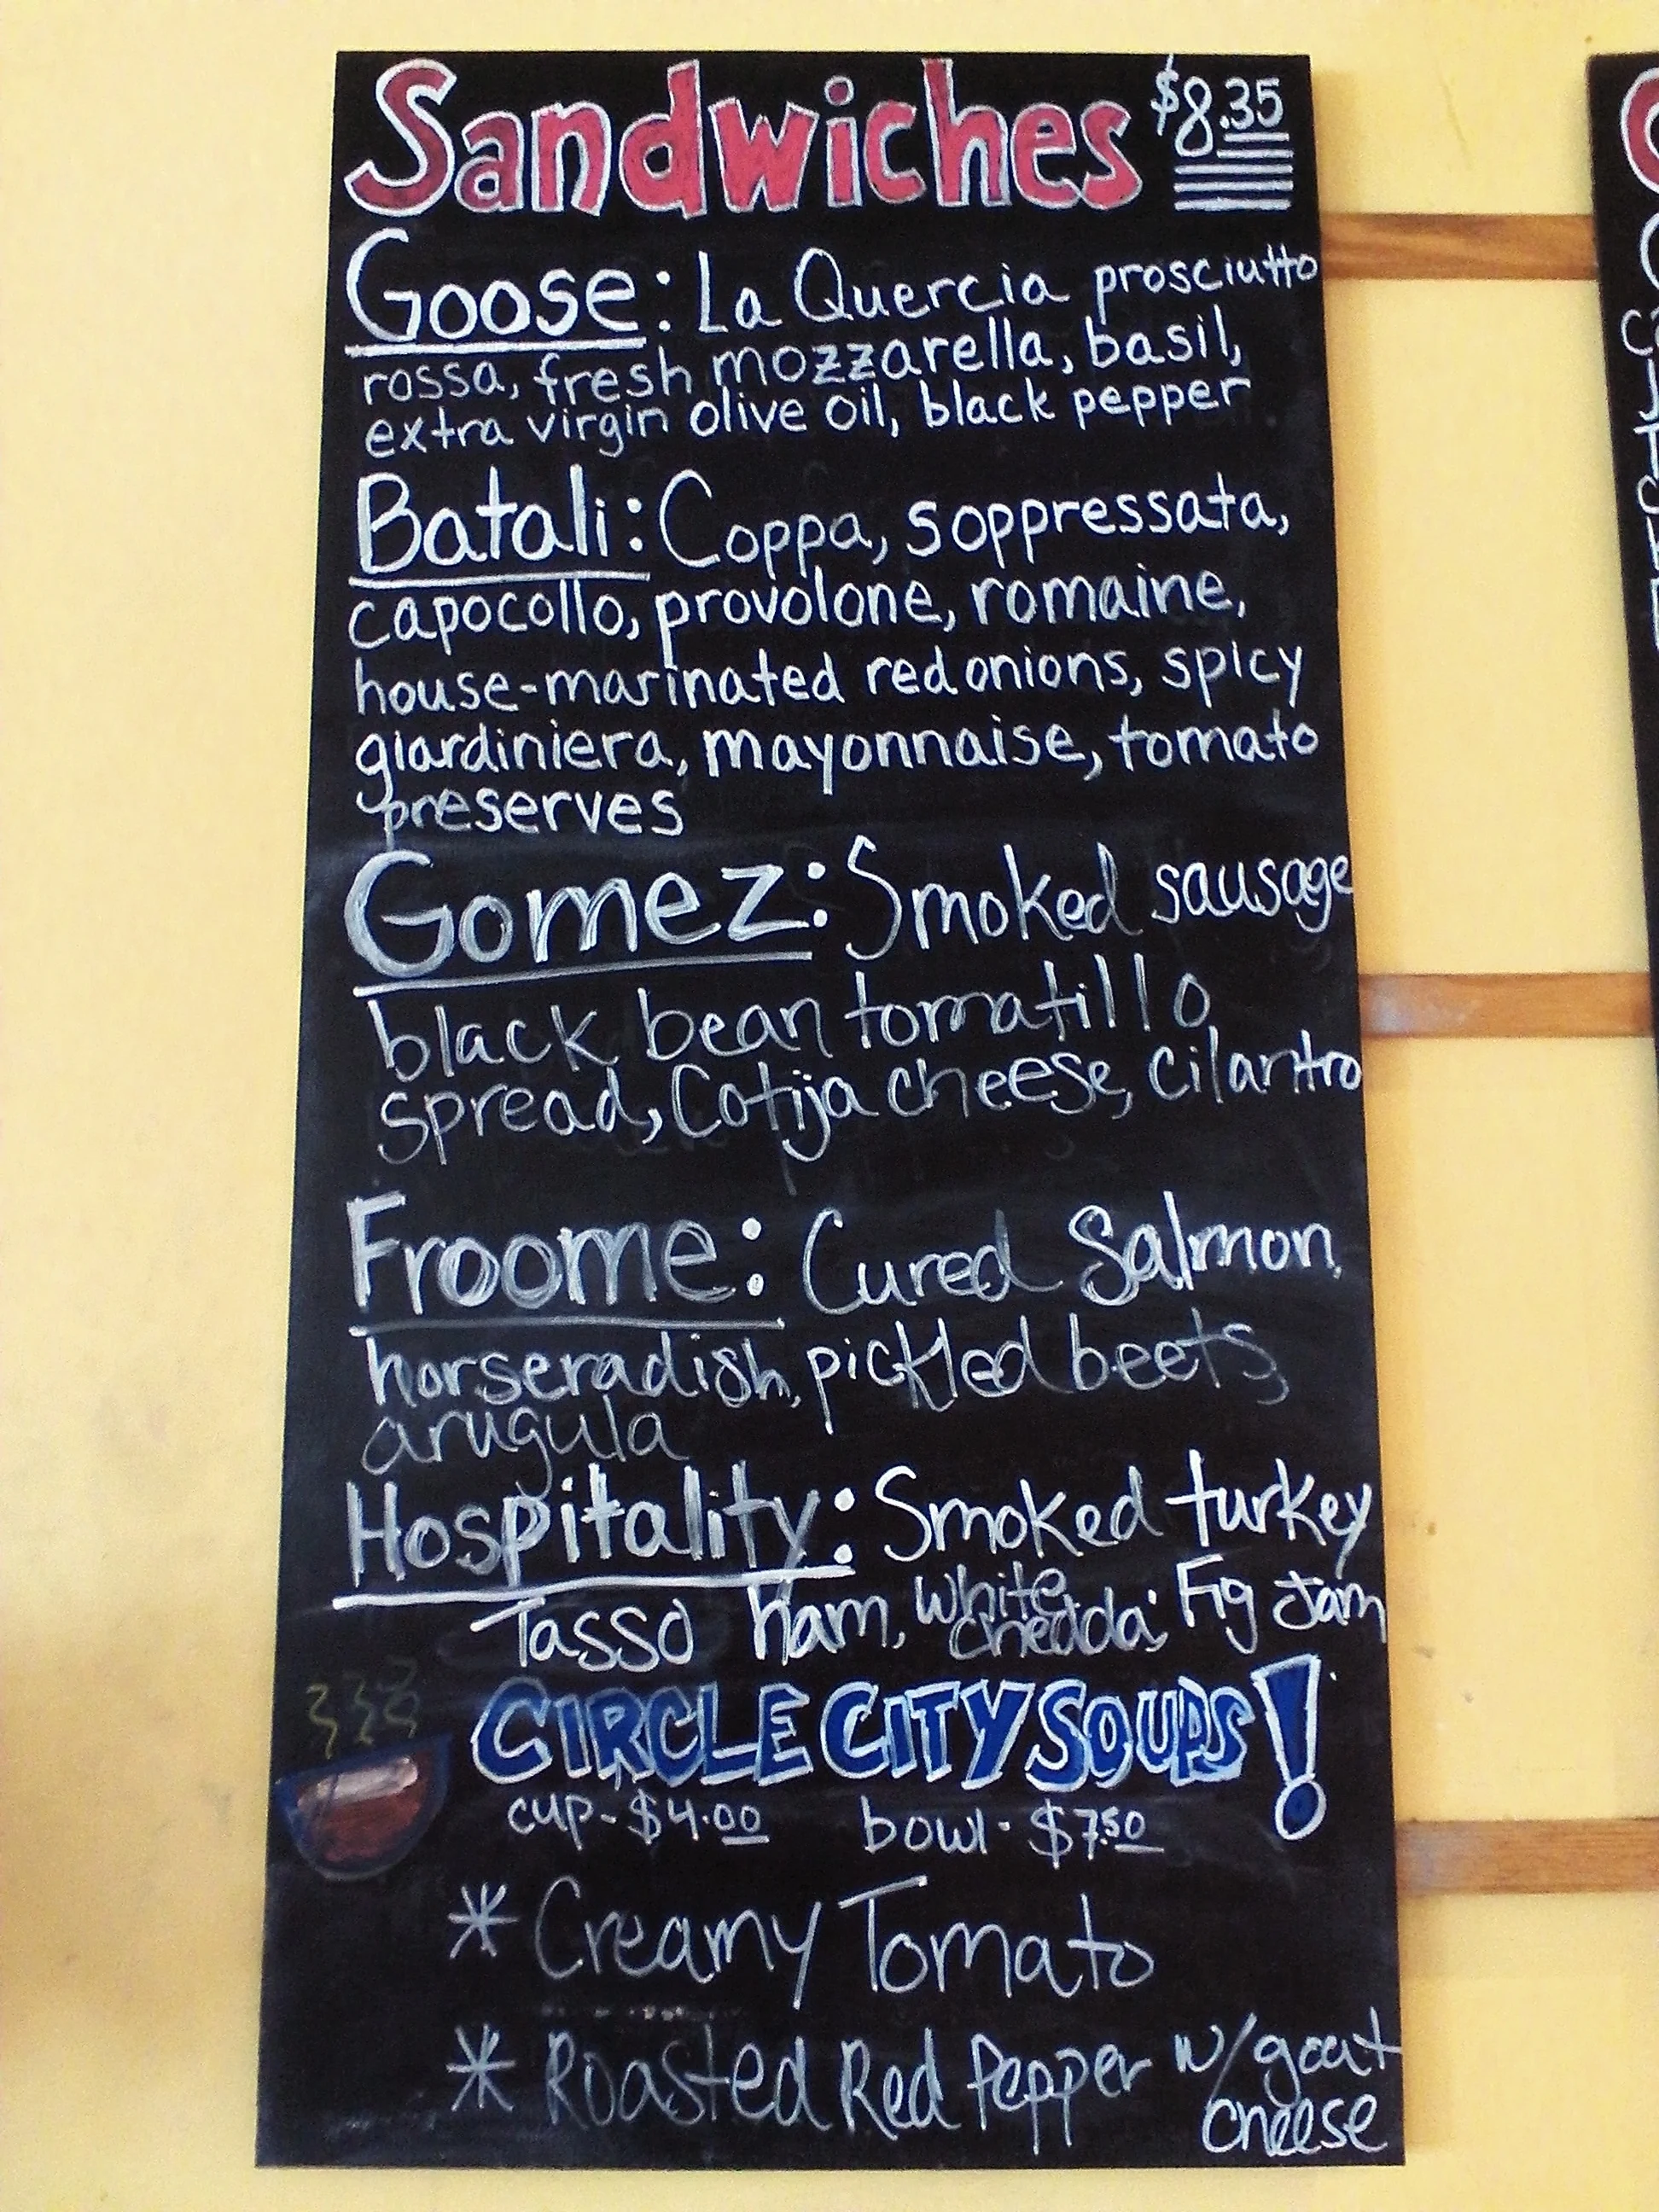 Sandwiches $8.35
Goose: La Quercia prosciutto
rossa, fresh mozzarella, basil,
extra virgin olive oil, black pepper
Batali: Coppa, soppressata,
capocollo, provolone, romaine,
house-marinated red onions, spicy
giardiniera, mayonnaise, tomato
preserves
Gomez: Smoked sausage
black bean tomatillo
spread, Cotija cheese, cilantro
Froome: Cured Salmon,
horseradish, pickled beets,
arugula
Hospitality: Smoked turkey
Tasso ham, white Fig Jam
CIRCLE CITY SOUPS!
cup-$4.00 bowl-$7.50
* Creamy Tomato
* Roasted Red Pepper w/goat
cheese